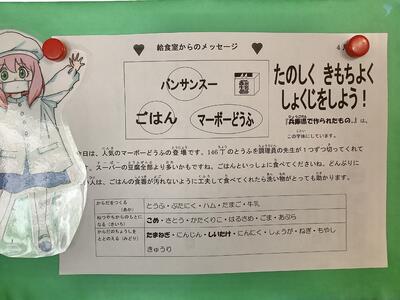 ♥ 給食室からのメッセージ ♥
4月
バンサンスー
ごはん
マーボーどうふ
たのしく きもちよく
しょくじをしよう!
『兵庫県で作られたもの。』は、
この字体にしています。
日は、人気のマーボーどうふの登場です。146丁のとうふを調理員の先生が1つずつ切ってくれて
す。スーパーの豆腐全部より多いかもですね。ごはんといっしょに食べてくださいね。どんぶりに
い人は、ごはんの食器が汚れないように工夫して食べてくれたら洗い物がとっても助かります。
からだをつくる
(あか)
とうふ・ぶたにく・ハム・たまご・牛乳
ねつやちからのもとに
なる(きいろ)
こめ・さとう・かたくりこ・はるさめ・ごま・あぶら
からだのちょうしを
ととのえる(みどり)
たまねぎ・にんじん・しいたけ・にんにく・しょうが・ねぎ・もやし
きゅうり